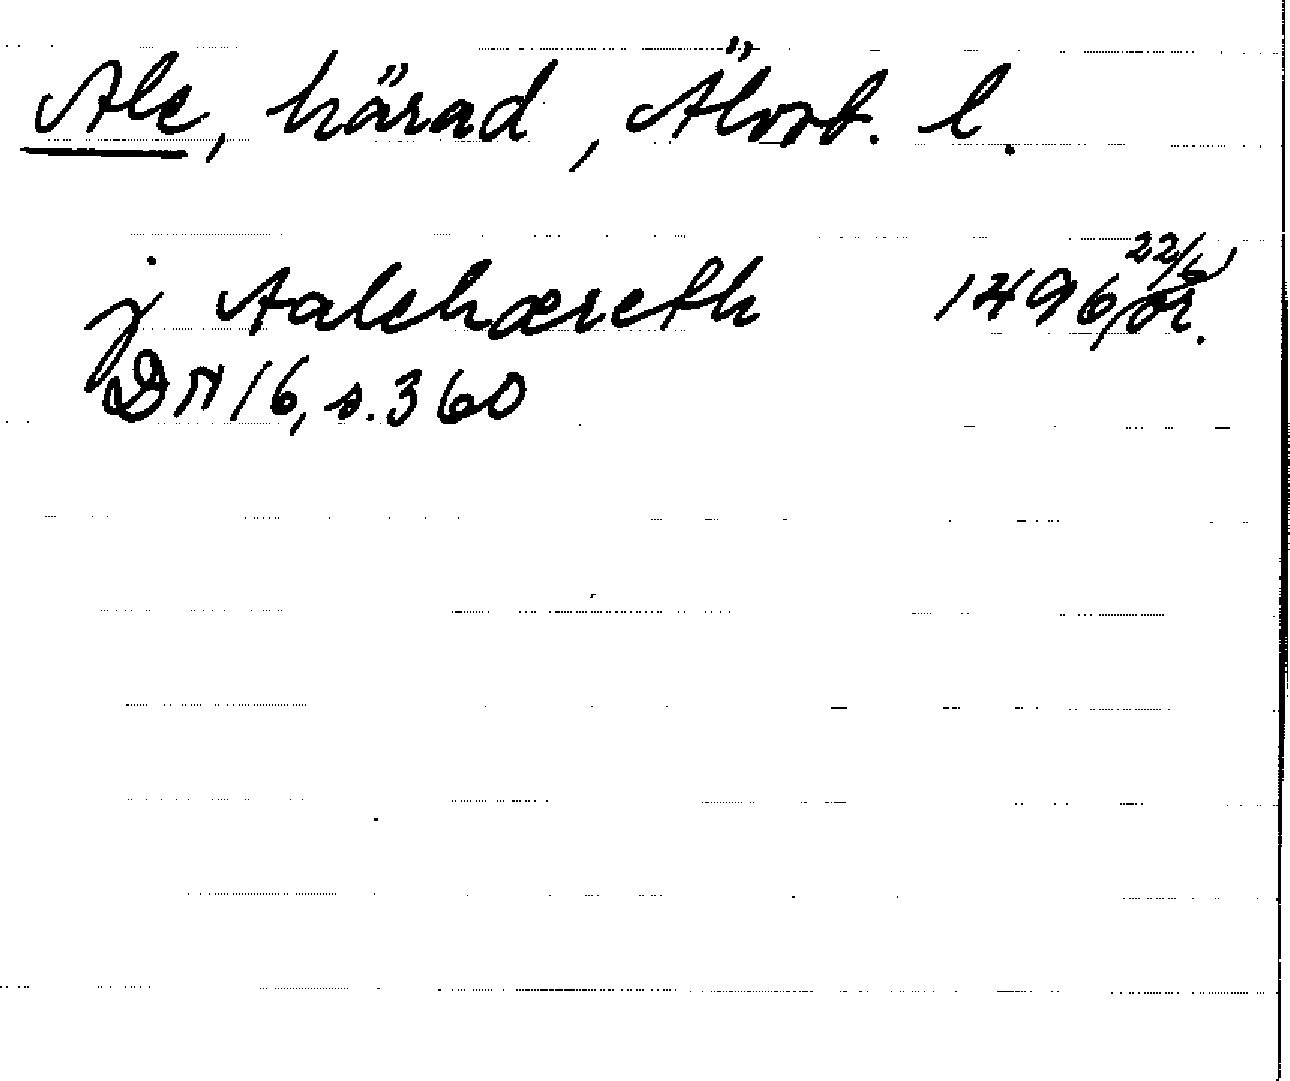 Ale, härad, Älvsb. l.
j Aalehæreth 1496 22/6 or.
DN 16, s. 360